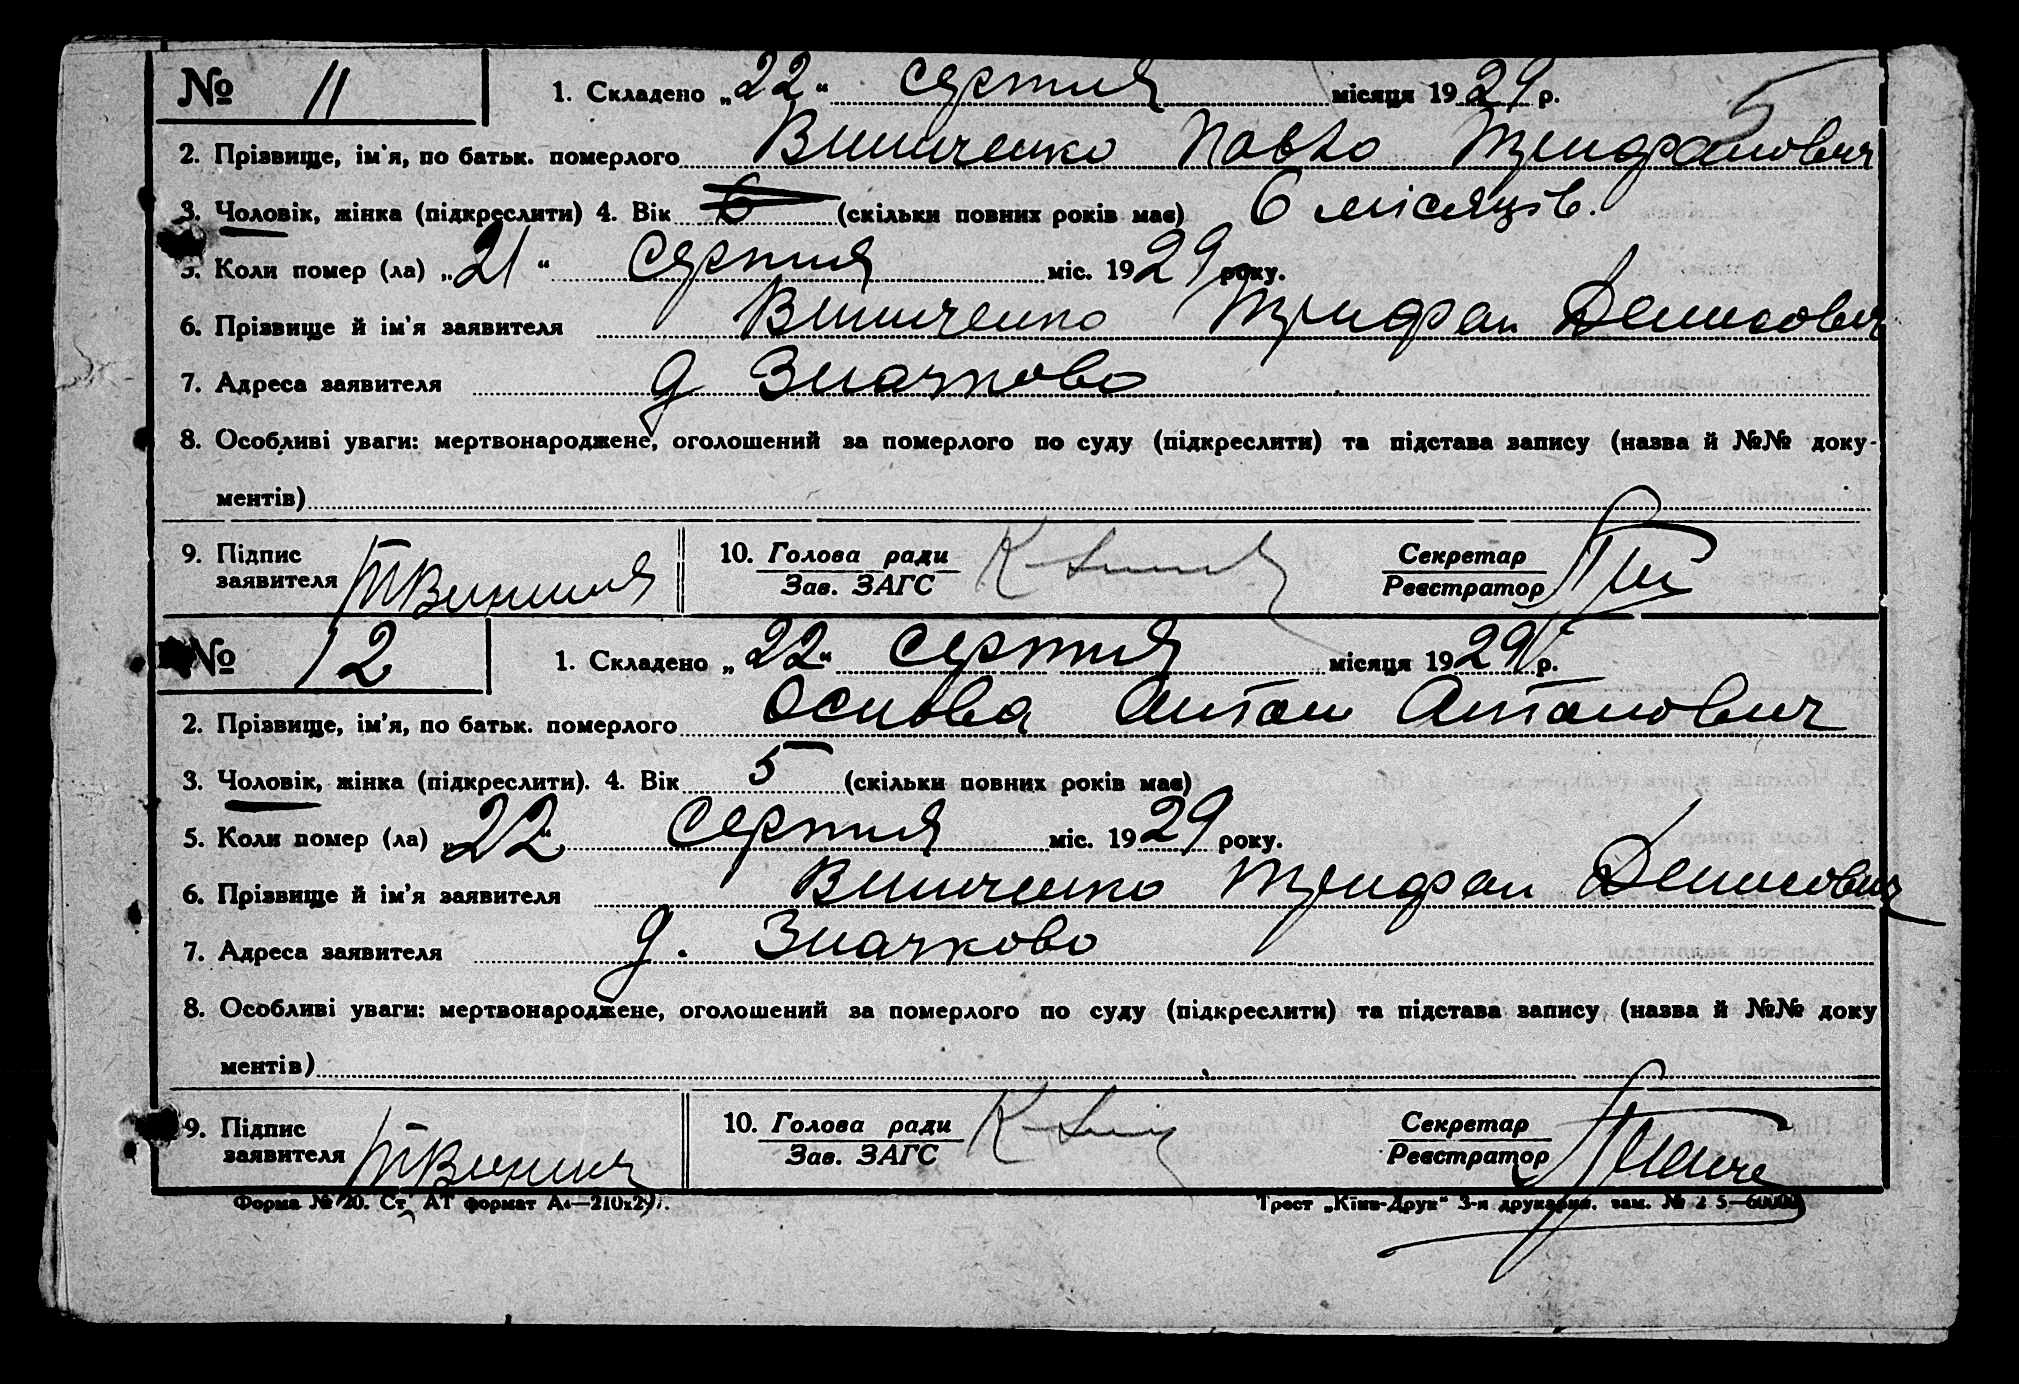 № 11 1. Складено „22“ серпня місяця 1929 р. 5
2. Прізвище, ім'я, по батьк. померлого Винниченко Павло Трифанович
3. Чоловік, жінка (підкреслити) 4. Вік 6 (скільки повних років має) 6 місяців.
5. Коли помер (ла) „21“ серпня міс. 1929 року.
6. Прізвище й ім'я заявителя Винниченко Трифан Денисович
7. Адреса заявителя д Значково
8. Особливі уваги: мертвонароджене, оголошений за померлого по суду (підкреслити) та підстава запису (назва й №№ доку-
ментів)
9. Підпис заявителя 10. Голова ради Секретар
Зав. ЗАГС Реєстратор
№ 12 1. Складено „22“ серпня місяця 1929 р.
2. Прізвище, ім'я, по батьк. померлого Основа Антон Антонович
3. Чоловік, жінка (підкреслити). 4. Вік 5 (скільки повних років має)
5. Коли помер (ла) „22“ серпня міс. 1929 року.
6. Прізвище й ім'я заявителя Винниченко Трифан Денисович
7. Адреса заявителя д. Значково
8. Особливі уваги: мертвонароджене, оголошений за померлого по суду (підкреслити) та підстава запису (назва й №№ доку
ментів)
9. Підпис заявителя 10. Голова ради Секретар
Зав. ЗАГС Реєстратор
Форма № 20. Ст. АТ формат А4—210х297. Трест „Київ-Друк“ 3-я друкарня. зам. №